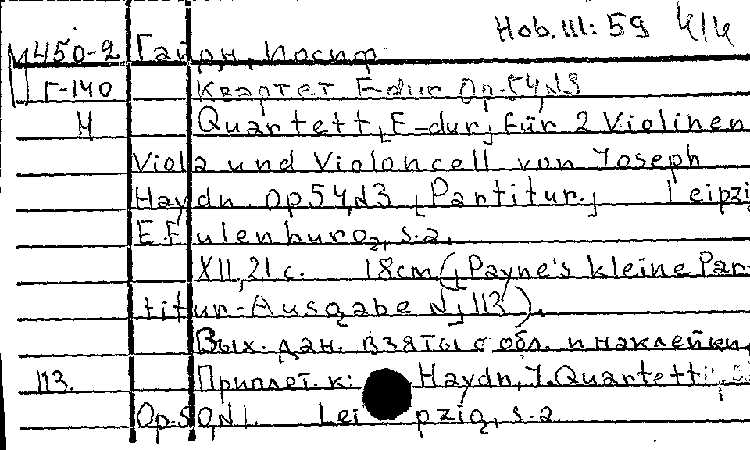 Hob. III: 59 4/4
М450-2 Гайдн, Иосиф.
Г-140 Квартет E-dur Op.54,N3
Н Quartett [E-dur] für 2 Violinen
Viola und Violoncell von Joseph
Haydn. Op.54,N3 [Partitur.] Leipzig
E.Eulenburg, s.a.
XII, 21 с. 18cm ([Payne's kleine Par-
titur-Ausgabe N] 113).
Вых. дан. взяты с обл. и наклейки.
113. Приплет. к: Haydn, J. Quartett
Op.50,N1. Leipzig, s.a.